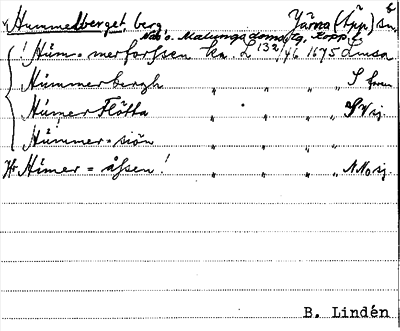 Hummelberget, berg Järna (Äpp) sn.
Nås o. Malungs domsag, Kopp. l.
! Hům=merforssen ka. L 132/46 1675 Limsa
Hůmmerbergh " " " " S fram
Hůmer Flőtta " " " " SV sj.
Hůmmer=siön " " " "
Hr Hůmer=åssen! " " " " NNo sj.
B. Lindén